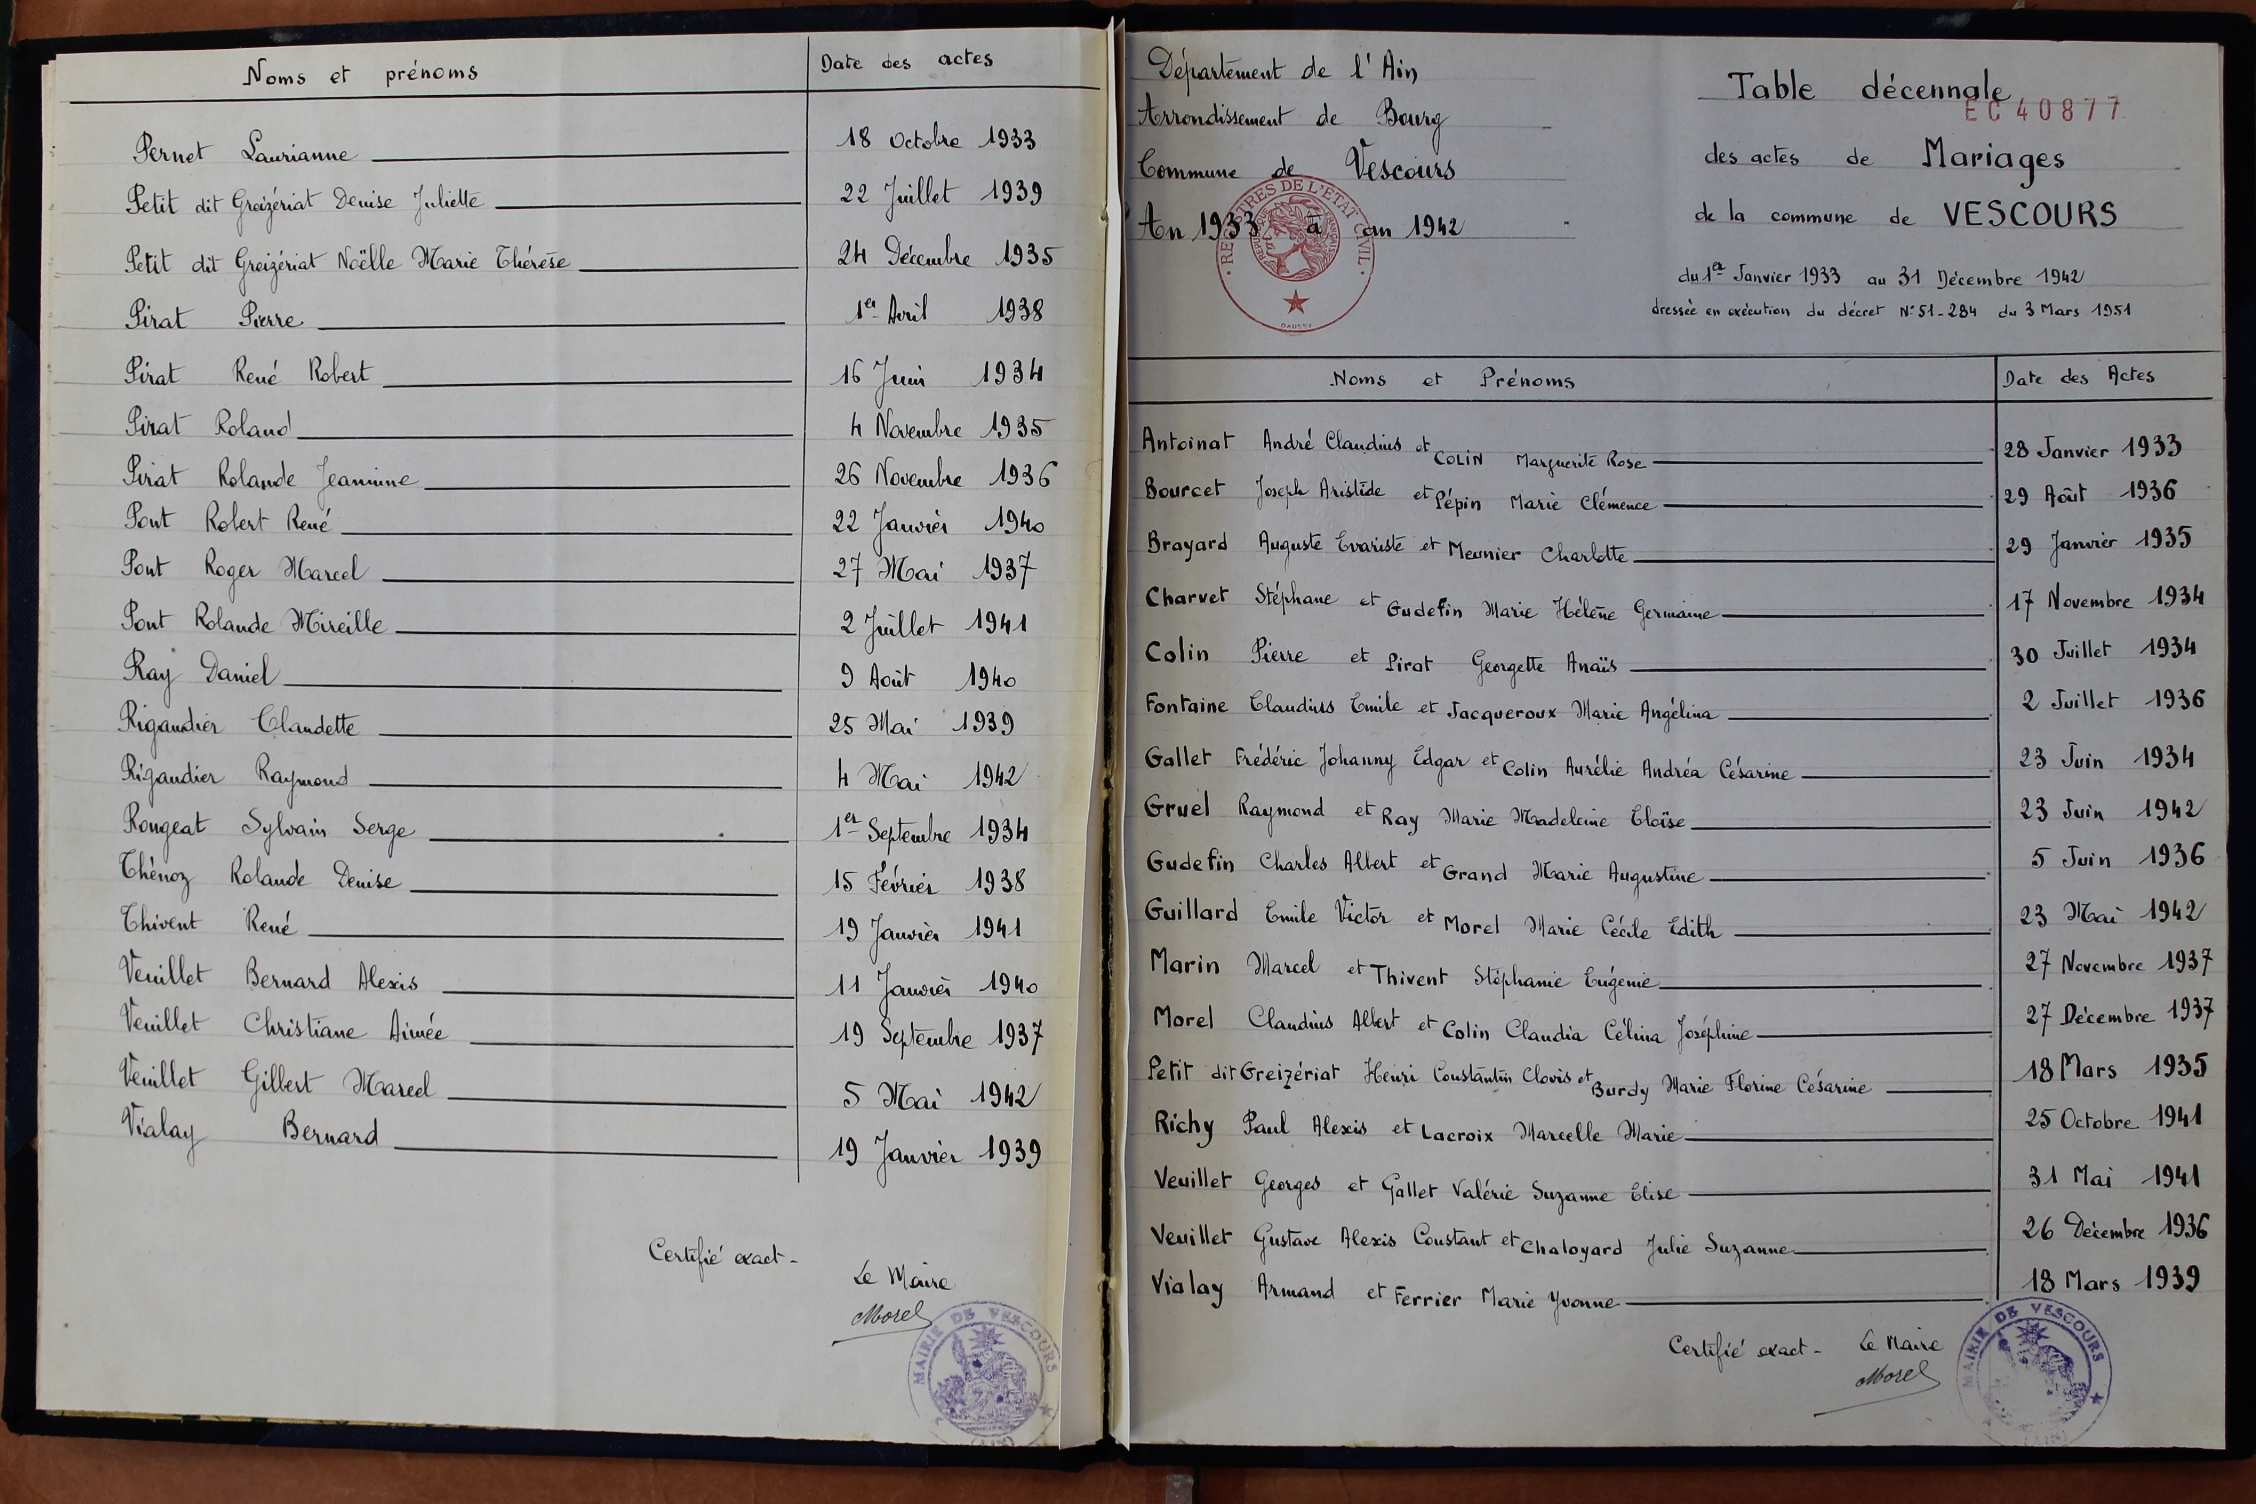 Noms et prénoms Date des actes
Pernet Laurianne 18 Octobre 1933
Petit dit Greizériat Denise Juliette 22 Juillet 1939
Petit dit Greizériat Noëlle Marie Thérèse 24 Décembre 1935
Pirat Pierre 1er Avril 1938
Pirat René Robert 16 Juin 1934
Pirat Roland 4 Novembre 1935
Pirat Rolande Jeannine 26 Novembre 1936
Pont Robert René 22 Janvier 1940
Pont Roger Marcel 27 Mai 1937
Pont Rolande Mireille 2 Juillet 1941
Ray Daniel 9 Août 1940
Rigaudier Claudette 25 Mai 1939
Rigaudier Raymond 4 Mai 1942
Rongeat Sylvain Serge 1er Septembre 1934
Thénoz Rolande Denise 15 Février 1938
Thivent René 19 Janvier 1941
Veuillet Bernard Alexis 11 Janvier 1940
Veuillet Christiane Aimée 19 Septembre 1937
Veuillet Gilbert Marcel 5 Mai 1942
Vialay Bernard 19 Janvier 1939
Certifié exact -
Le Maire
Morel
MAIRIE DE VESCOURS
(AIN)
Département de l'Ain
Arrondissement de Bourg
Commune de Vescours
An 1933 à an 1942
REGISTRES DE L'ETAT CIVIL
Table décennale
EC 40877
des actes de Mariages
de la commune de VESCOURS
du 1er Janvier 1933 au 31 Décembre 1942
dressée en exécution du décret N° 51-284 du 3 Mars 1951
Noms et Prénoms Date des Actes
Antoinat André Claudius et COLIN Marguerite Rose 28 Janvier 1933
Bourcet Joseph Aristide et Pépin Marie Clémence 29 Août 1936
Brayard Auguste Evariste et Meunier Charlotte 29 Janvier 1935
Charvet Stéphane et Gudefin Marie Hélène Germaine 17 Novembre 1934
Colin Pierre et Pirat Georgette Anaïs 30 Juillet 1934
Fontaine Claudius Emile et Jacqueroux Marie Angélina 2 Juillet 1936
Gallet Frédéric Johanny Edgar et Colin Aurélie Andréa Césarine 23 Juin 1934
Gruel Raymond et Ray Marie Madeleine Eloïse 23 Juin 1942
Gudefin Charles Albert et Grand Marie Augustine 5 Juin 1936
Guillard Emile Victor et Morel Marie Cécile Edith 23 Mai 1942
Marin Marcel et Thivent Stéphanie Eugénie 27 Novembre 1937
Morel Claudius Albert et Colin Claudia Célina Joséphine 27 Décembre 1937
Petit dit Greizériat Henri Constantin Clovis et Burdy Marie Florine Césarine 18 Mars 1935
Richy Paul Alexis et Lacroix Marcelle Marie 25 Octobre 1941
Veuillet Georges et Gallet Valérie Suzanne Elise 31 Mai 1941
Veuillet Gustave Alexis Constant et Chaloyard Julie Suzanne 26 Décembre 1936
Vialay Armand et Ferrier Marie Yvonne 18 Mars 1939
Certifié exact - Le Maire
Morel
MAIRIE DE VESCOURS
(AIN)